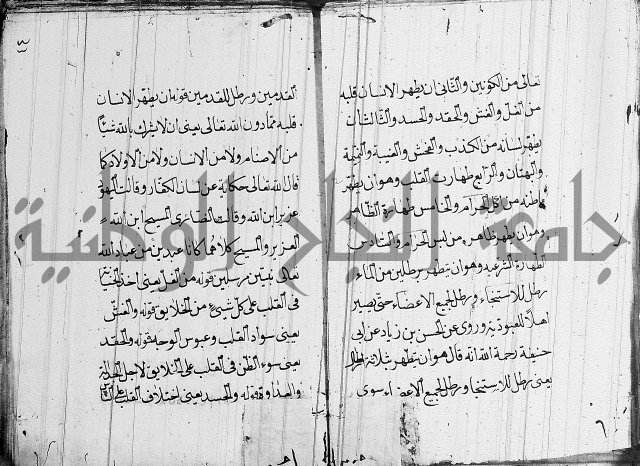 تعالى من الكونين والثاني ان يطهر الانسان قلبه
من الغل والغش والحقد والحسد والثالث ان
يطهر لسانه من الكذب والفحش والغيبة والنميمة
والبهتان والرابع طهارت القلب وهو ان يطهر
باطنه من اكل الحرام والخامس طهارة الظاهر
وهو ان يطهر ظاهره من لبس الحرام والسادس
الطهارة الشرعية وهو ان يتطهر برطلين من الماء
رطل للاستنجاء ورطل لجميع الاعضاء حتى يصير
اهلا للعبودية وروي عن الحسن بن زياد عن ابي
حنيفة رحمة الله انه قال هو ان يتطهر بثلاثة
يعني رطل للاستنجا ورطل لجميع الاعضاء سوى
القدمين ورطل للقدمين قوله ان يطهر الانسان
قلبه مما دون الله تعالى يعني ان لا يشرك بالله شيئا
من الاصنام ولا من الانسان ولا من الاولاد كما
قال الله تعالى حكاية عن لسان الكفار وقالت اليهود
عزير ابن الله وقالت النصارى المسيح ابن الله
العزير والمسيح كلاهما كانا عبدين من عباد الله
تعالى نبيين مرسلين قوله من الغل يعني اخذ
في القلب على كل شيئ من الخلايق قوله والغش
يعني سواد القلب وعبوس الوجه قوله والحقد
يعني سوء الظن في القلب على الخلايق لاجل
والعداوة قوله والحسد يعني اختلاف القلب
جامعة النجاح الوطنية